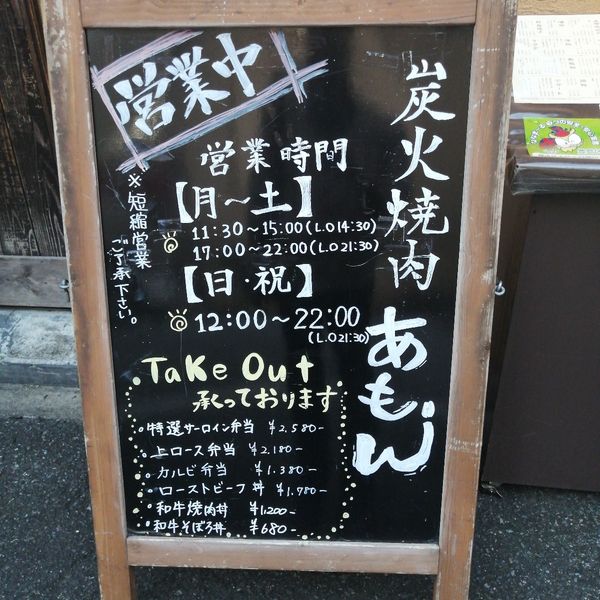 営業中
炭火焼肉 あもん
営業時間
【月～土】
11:30～15:00(L.O14:30)
17:00～22:00(L.O21:30)
【日・祝】
12:00～22:00
(L.O21:30)
※短縮営業
ご了承下さい。
Take Out
承っております
特選サーロイン弁当 ¥2,580-
上ロース弁当 ¥2,180-
カルビ弁当 ¥1,380-
ローストビーフ丼 ¥1,780-
和牛焼肉丼 ¥1,200-
和牛そぼろ丼 ¥680-